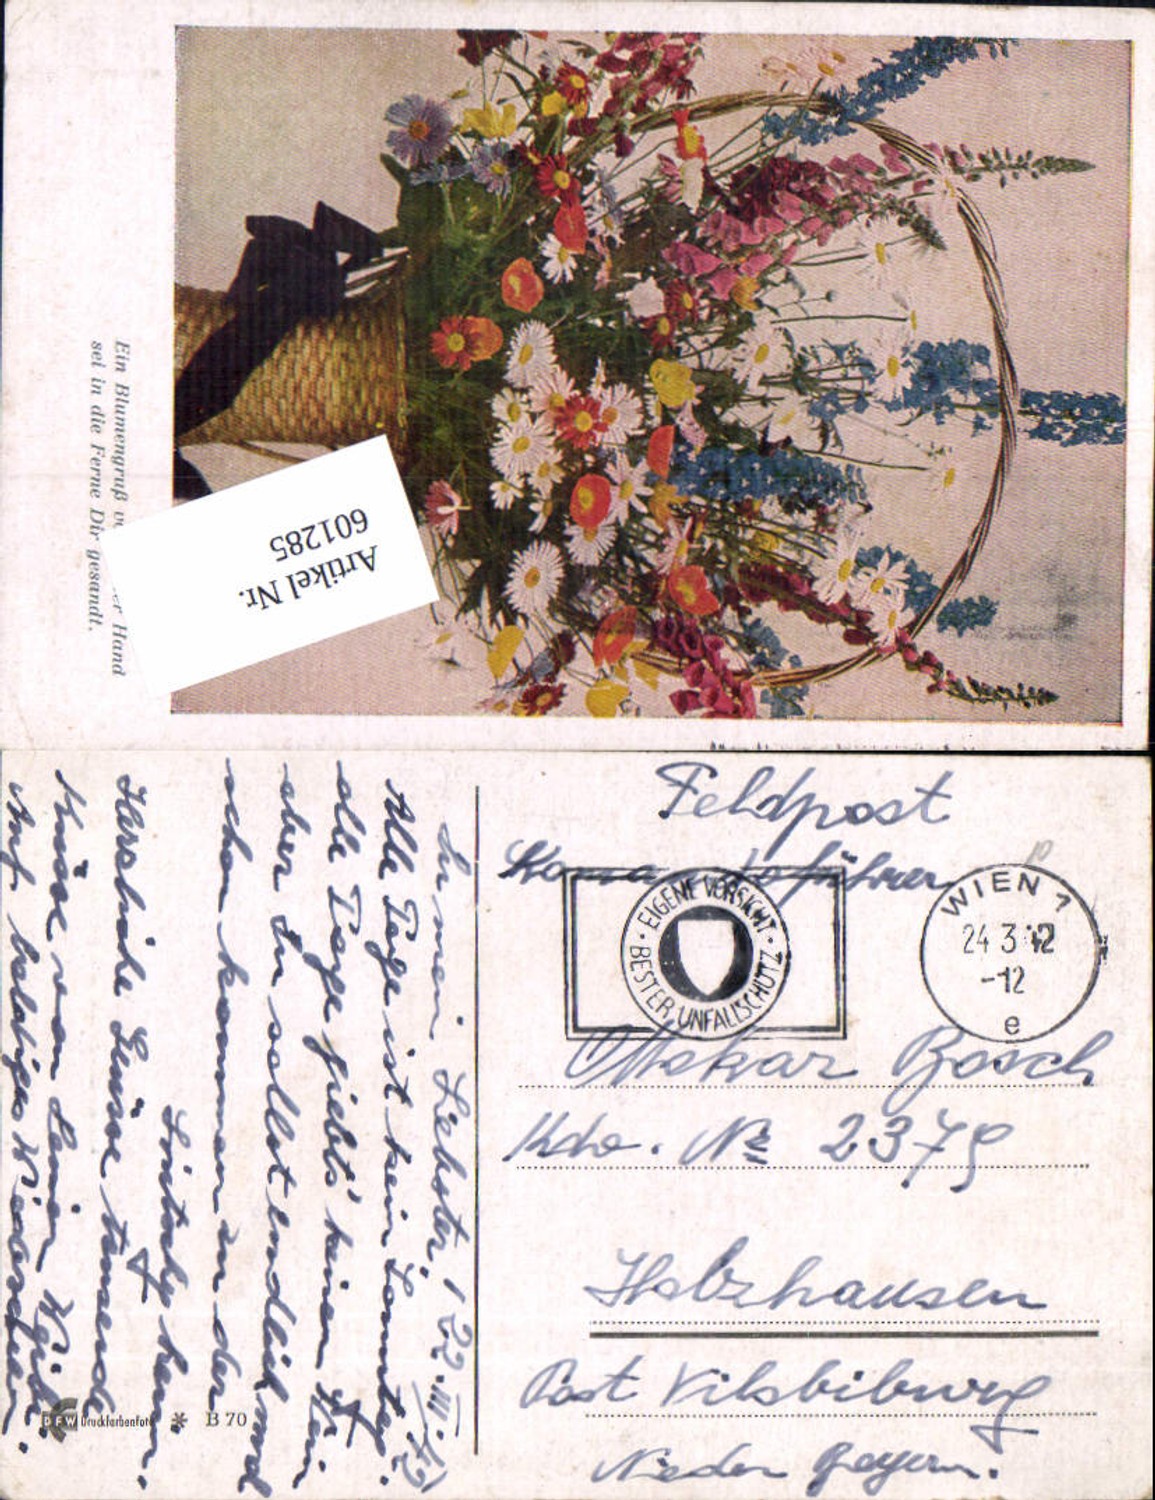 Ein Blumengruß
er Hand
sei in die Ferne Dir gesandt.
Artikel Nr.
601285
Feldpost
WIEN 1
24 3 42
-12
e
EIGENE VORSICHT · BESTER UNFALLSCHUTZ ·
Ottokar Bosch
Kdo. № 2379
Holzhausen
Post Vilsbiburg
Nieder Bayern.
Du mein Liebster, 22.III.42
Alle Tage ist kein Sonntag,
alle Tage giebts keinen Wein
aber Du sollst endlich mal
schon kommen zu der
Herzliche Grüsse tausend
Küsse von Deiner
Auf baldiges Wiedersehen.
DFW Druckfarbenfoto * B 70